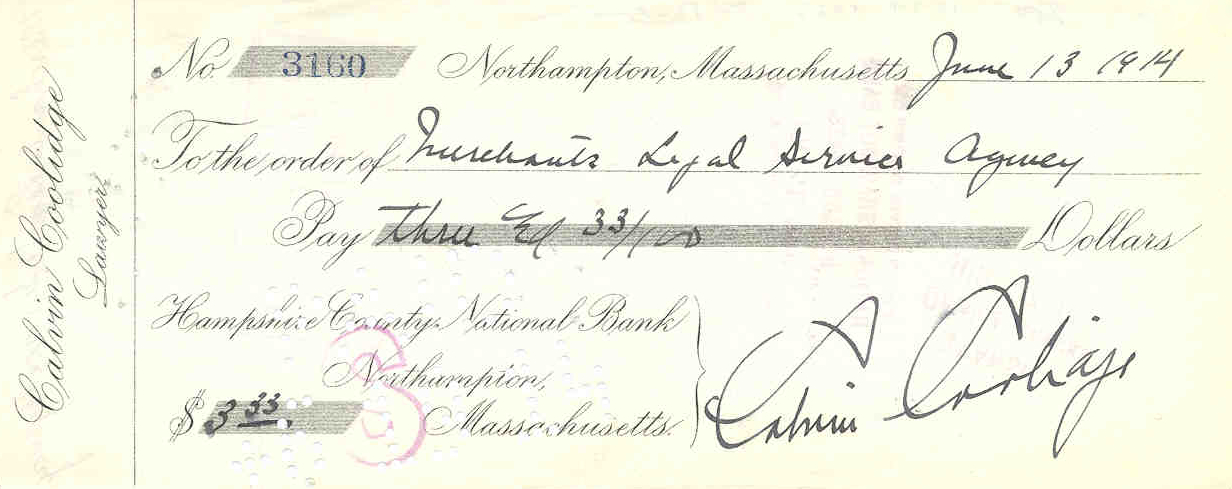 Calvin Coolidge
Lawyer
No. 3160 Northampton, Massachusetts June 13 1914
To the order of Merchants Legal Service Agency
Pay three & 33/100 Dollars
Hampshire County National Bank
Northampton,
$ 3 33. Massachusetts.
Calvin Coolidge